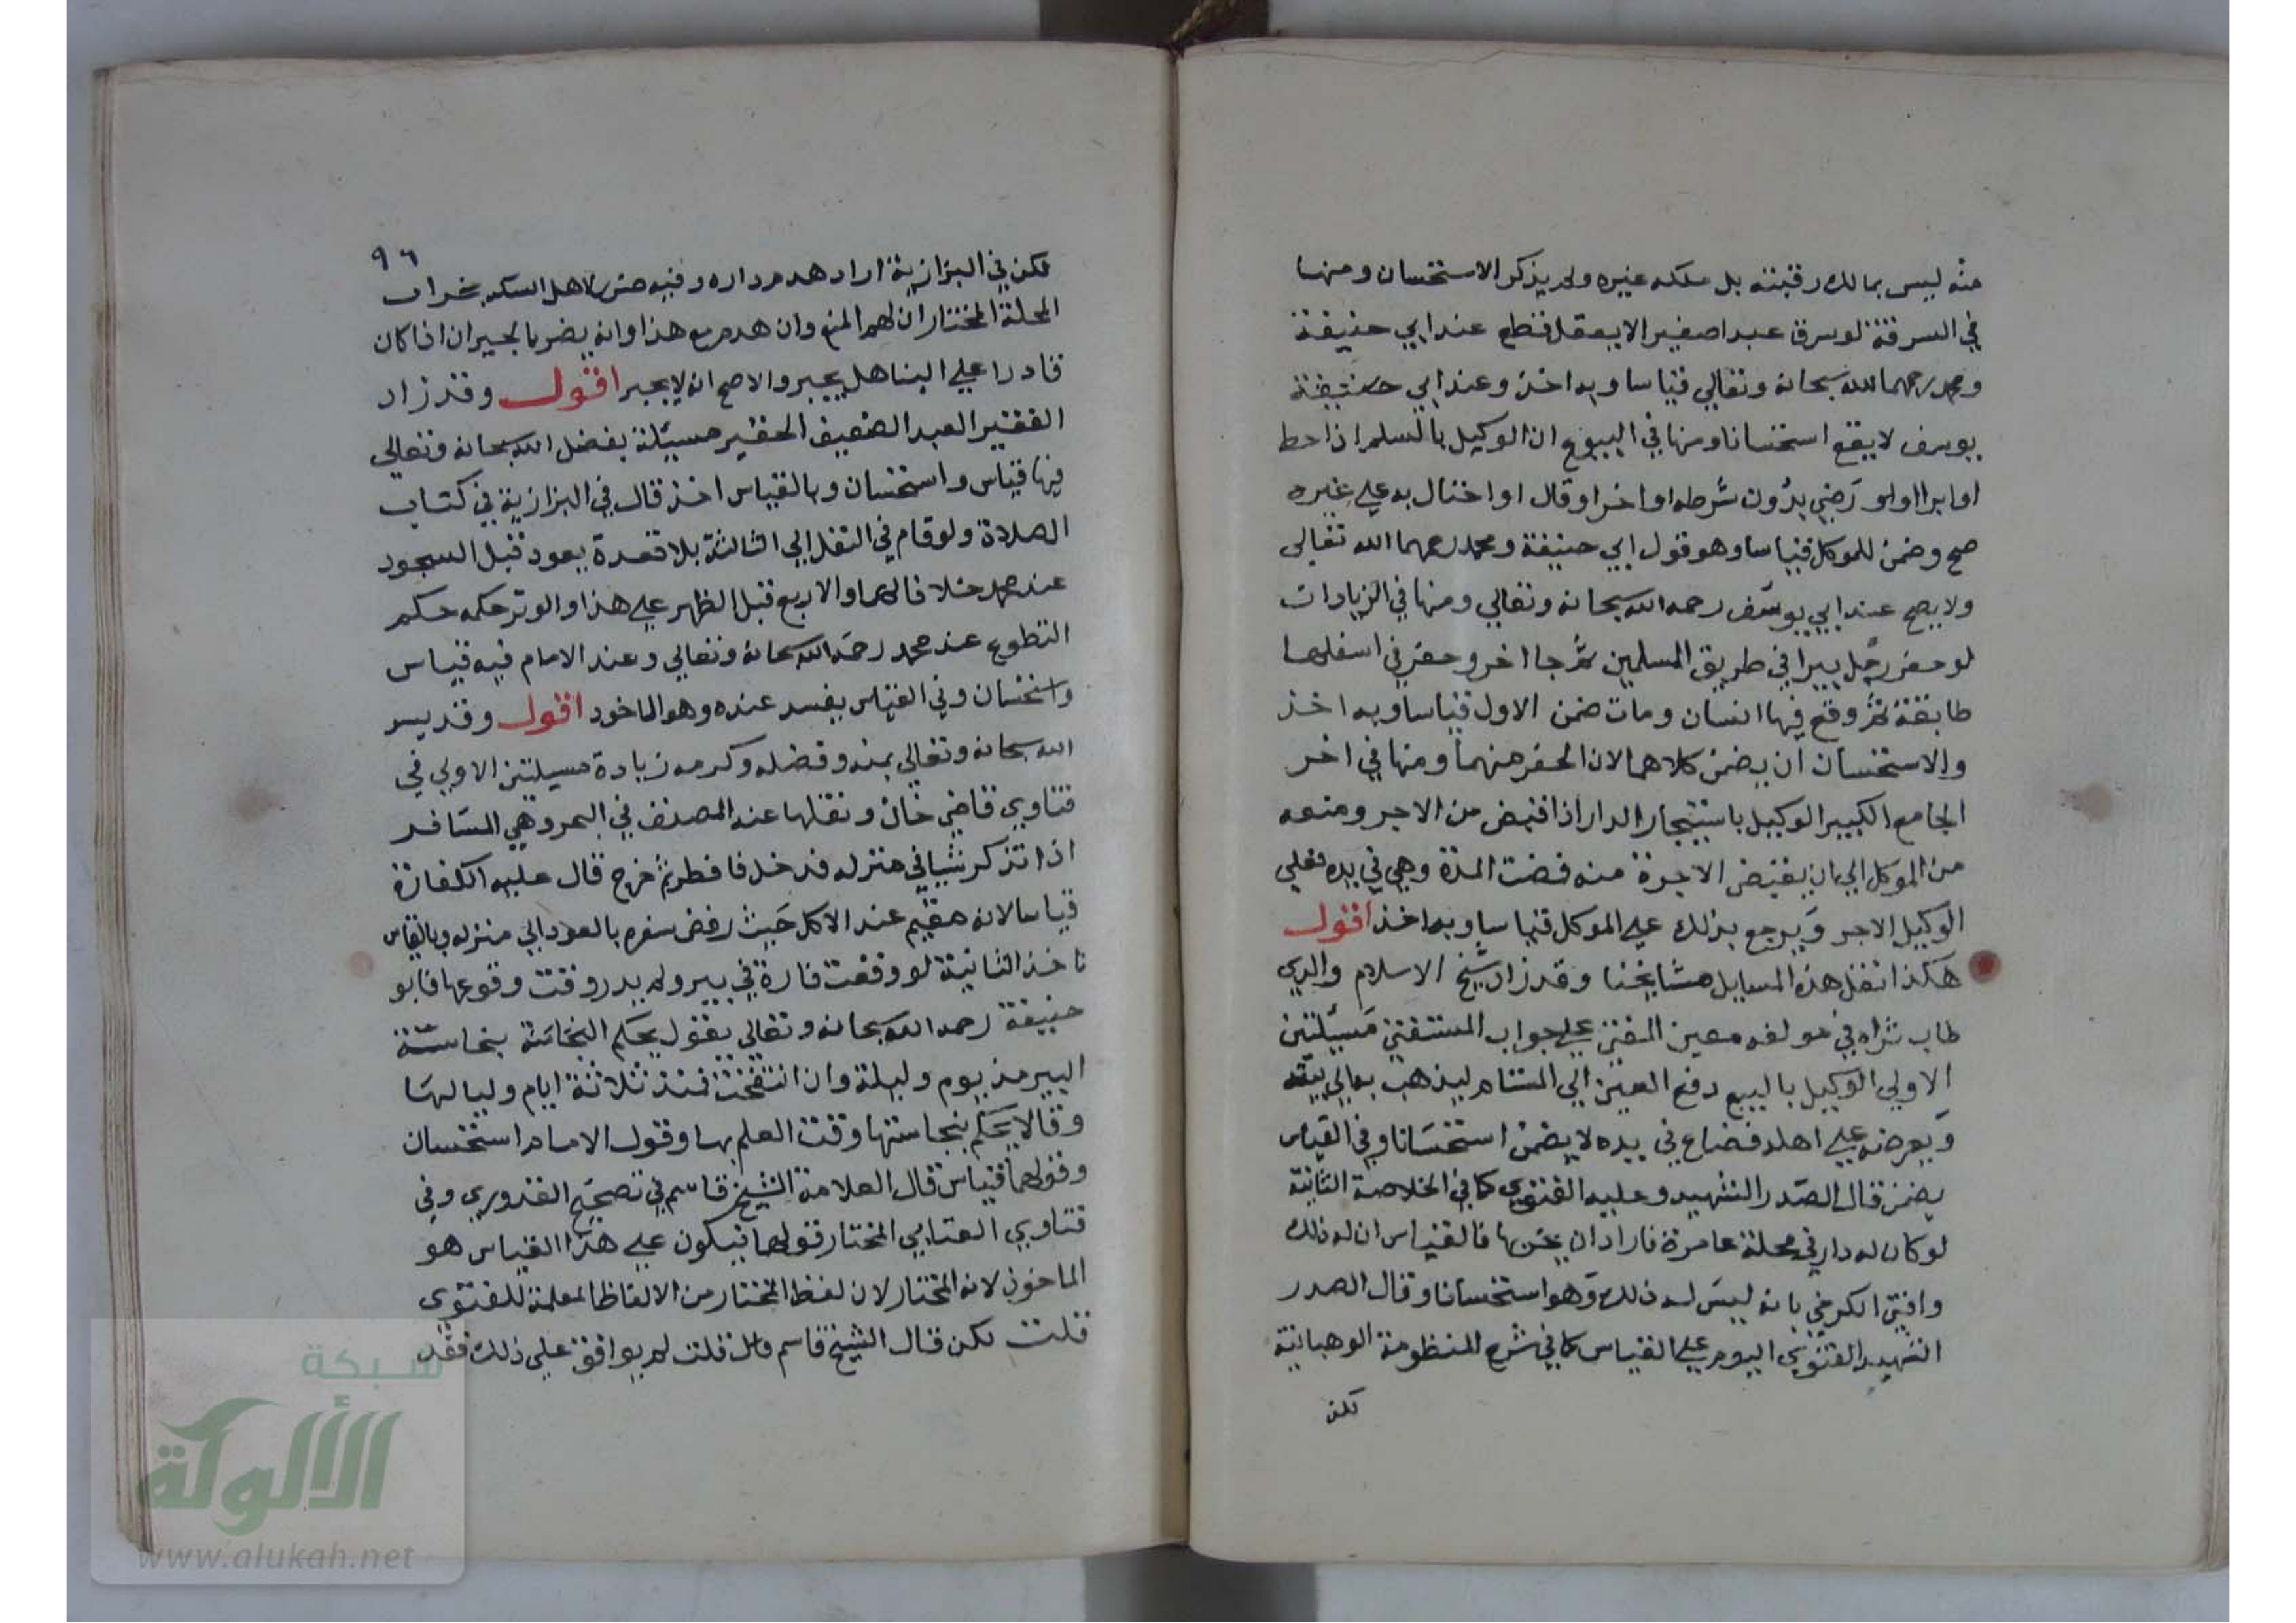 منه ليس بمالك رقبته بل ملكه غيره ولم يذكر الاستحسان ومنها
في السرقة لو سرق عبدا صغيرا لا يعقل قطع عند ابي حنيفة
ومحمد رحمهما الله سبحانه وتعالي قياسا وبه اخذ وعند ابي حنيفة
يوسف لا يقع استحسانا ومنها في البيوع ان الوكيل بالسلم اذا حط
او ابرا او لو رضي بدون شرطه او اخر او قال او احتال به علي غيره
صح وضمن للموكل قياسا وهو قول ابي حنيفة ومحمد رحمهما الله تعالى
ولا يصح عند ابي يوسف رحمه الله سبحانه وتعالي ومنها في الزيادات
لو حفر رجل بيرا في طريق المسلمين ثم جا اخر وحفر في اسفلها
طابقة ثم وقع فيها انسان ومات ضمن الاول قياسا وبه اخذ
والاستحسان ان يضمن كلاهما لان الحفر منهما ومنها في اخر
الجامع الكبير الوكيل باستيجار الدار اذا قبض من الاجر ومنعه
من الموكل الي ان يقبض الاجرة منه فمضت المدة وهي في يده فعلي
الوكيل الاجر ويرجع بذلك علي الموكل قياسا وبه اخذ اقول
هكذا نقل هذه المسايل مشايخنا وقد زاد شيخ الاسلام والدي
طاب ثراه في مولفه معين المفتي علي جواب المستفتي مسيلتين
الاولي الوكيل بالبيع دفع العين الي المستام ليذهب به الي بيته
ويعرضه علي اهله فضاع في يده لا يضمن استحسانا وفي القياس
يضمن قال الصدر الشهيد وعليه الفتوي كما في الخلاصة الثانية
لو كان له دار في محلة عامرة فاراد ان يخربها فالقياس ان له ذلك
وافتي الكرخي بانه ليس له ذلك وهو استحسانا وقال الصدر
الشهيد الفتوي اليوم علي القياس كما في شرح المنظومة الوهبانية
لكن
٩٦
لكن في البزازية اراد هدم داره وفيه ضرر لاهل السكة بخراب
المحلة المختار ان لهم المنع وان هدم مع هذا وانه يضر بالجيران اذا كان
قادرا علي البنا هل يجبر والاصح انه لا يجبر اقول وقد زاد
الفقير العبد الضعيف الحقير مسيلة بفضل الله سبحانه وتعالي
فيها قياس واستحسان وبالقياس اخذ قال في البزازية في كتاب
الصلاة ولو قام في النفل الي الثالثة بلا قعدة يعود قبل السجود
عند محمد خلافا لهما والاربع قبل الظهر علي هذا والوتر حكمه حكم
التطوع عند محمد رحمه الله سبحانه وتعالي وعند الامام فيه قياس
واستحسان وفي القياس يفسد عنده وهو الماخود اقول وقد يسر
الله سبحانه وتعالي بمنه وفضله وكرمه زيادة مسيلتين الاولي في
فتاوي قاضي خان ونقلها عنه المصنف في البحر وهي المسافر
اذا تذكر شيا في منزله فدخل فافطر ثم خرج قال عليه الكفارة
قياسا لانه مقيم عند الاكل حيث رفض سفره بالعود الي منزله وبالقياس
ناخذ الثانية لو وقعت فارة في بير ولم يدر وقت وقوعها فابو
حنيفة رحمه الله سبحانه وتعالي يقول يحكم النجاسة بنجاسة
البير مذ يوم وليلة وان انتفخت فمنذ ثلاثة ايام ولياليها
وقالا يحكم بنجاستها وقت العلم بها وقول الامام استحسان
وقولهما قياس قال العلامة الشيخ قاسم في تصحيح القدوري وفي
فتاوي العتابي المختار قولهما فيكون علي هذا القياس هو
الماخوذ لانه المختار لان لفظ المختار من الالفاظ المعلمة للفتوي
قلت لكن قال الشيخ قاسم قلت لم يوافق علي ذلك فقد
شبكة
الألوكة
www.alukah.net